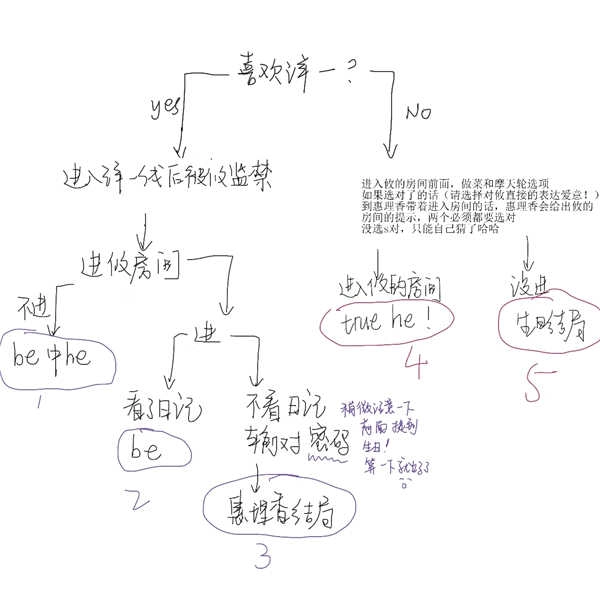 喜欢泽一？
yes
NO
进入泽一线后被攸监禁
进入攸的房间前面，做菜和摩天轮选项
如果选对了的话（请选择对攸直接的表达爱意！）
到惠理香带着进入房间的话，惠理香会给出攸的
房间的提示，两个必须都要选对
没选s对，只能自己猜了哈哈
进攸房间
不进
be中he
1
进
进入攸的房间
true he！
4
没进
生日结局
5
看了日记
be
2
不看日记
输对密码
稍微注意一下
前面提到
生日！
算一下就出了
惠理香结局
3